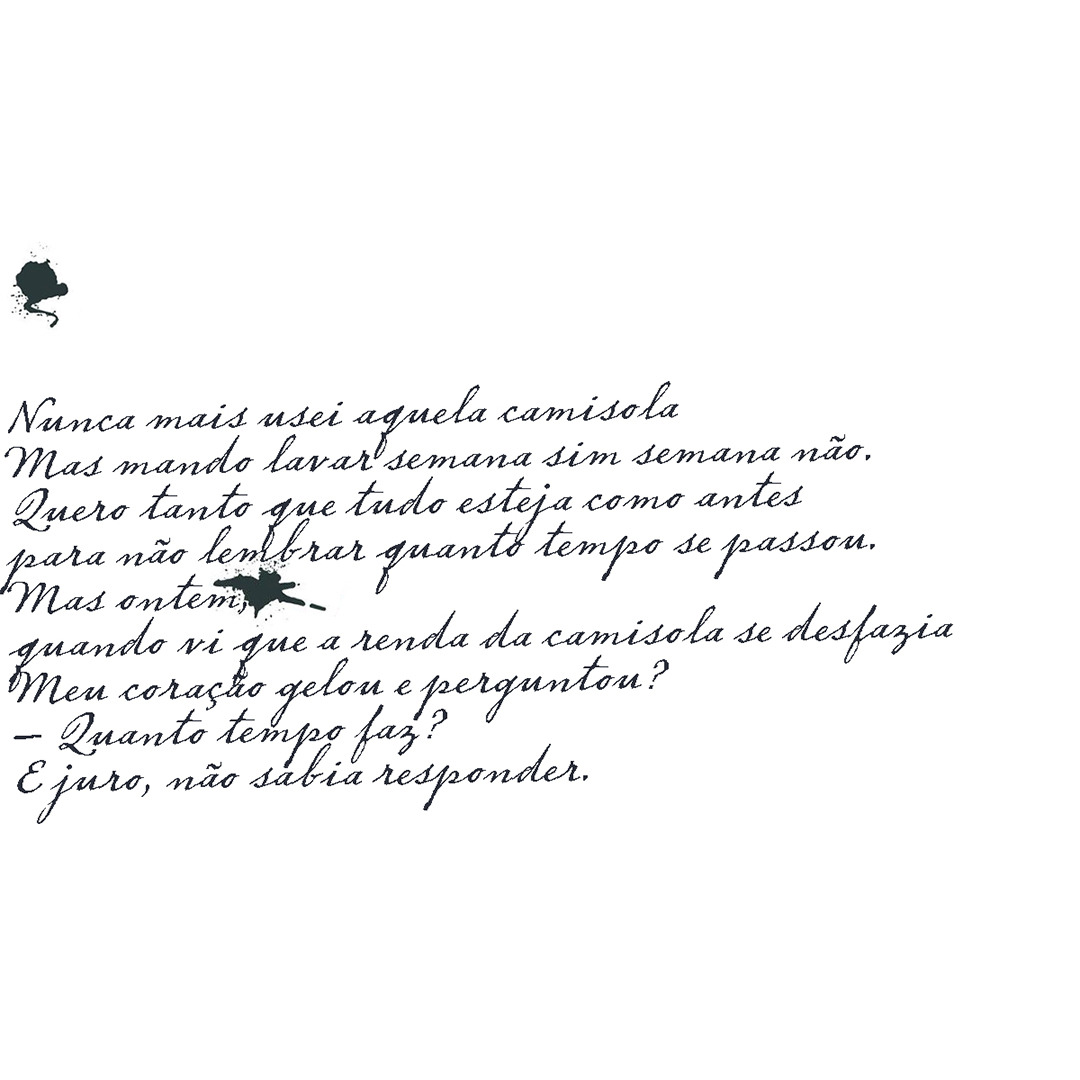 Nunca mais usei aquela camisola
Mas mando lavar semana sim semana não.
Quero tanto que tudo esteja como antes
para não lembrar quanto tempo se passou.
Mas ontem,
quando vi que a renda da camisola se desfazia
Meu coração gelou e perguntou?
— Quanto tempo faz?
E juro, não sabia responder.